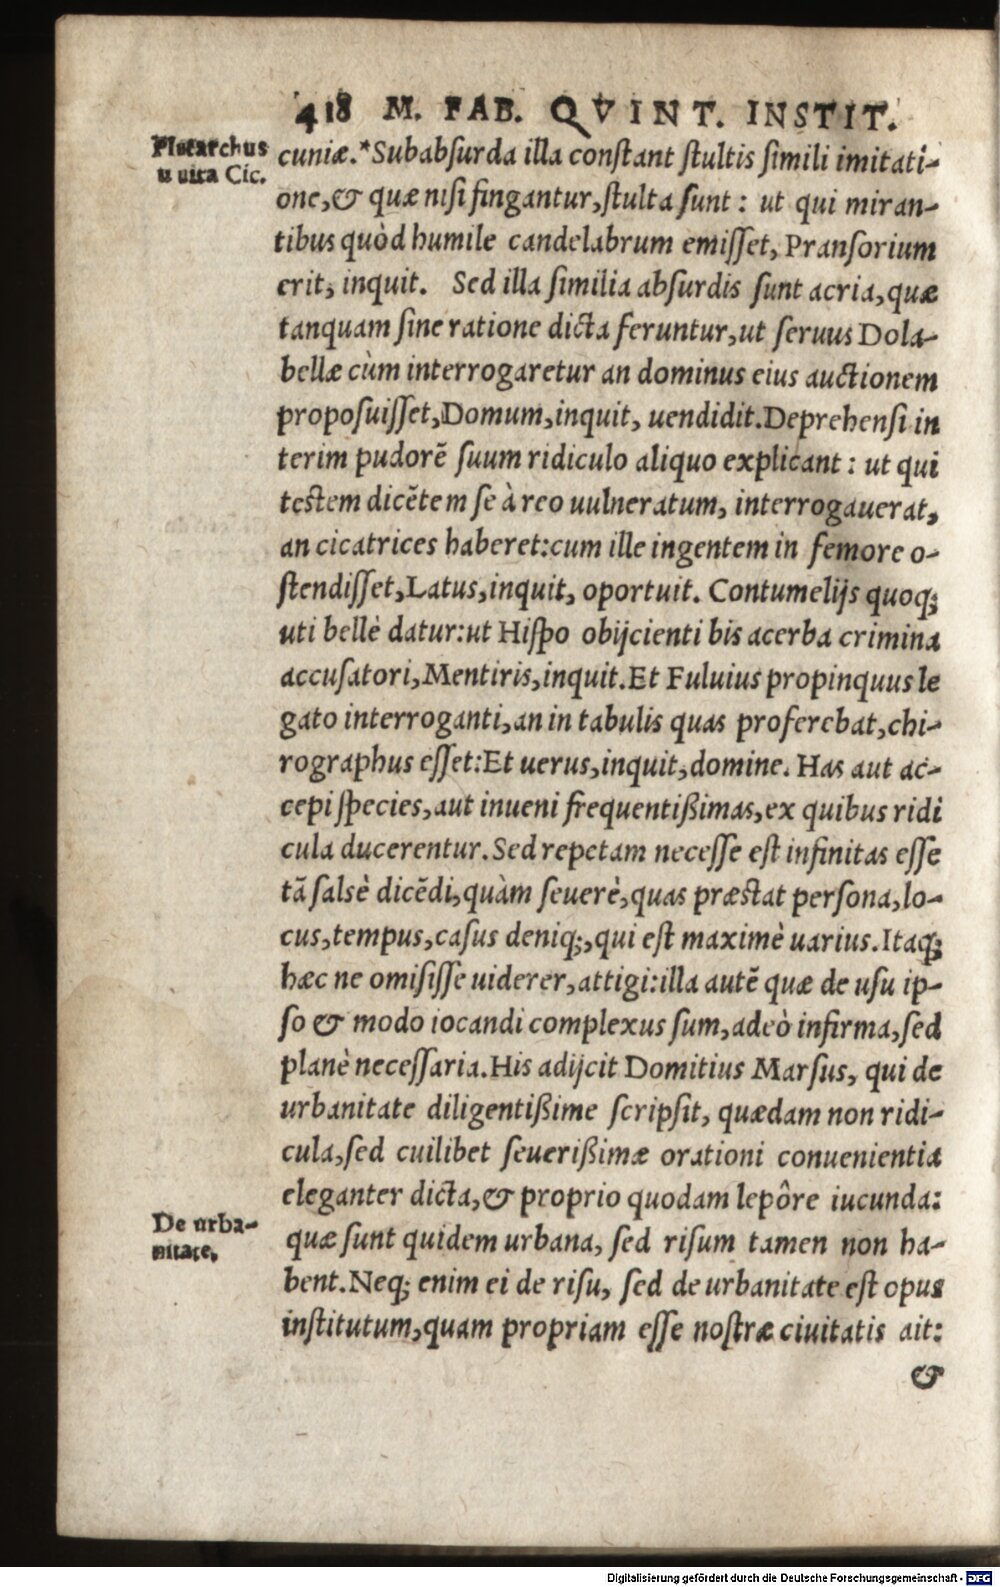 418 M. FAB. QVINT. INSTIT.
Plutarchus
u uita Cic.
cuniæ.*Subabſurda illa conſtant ſtultis ſimili imitati-
one,& quæ niſi fingantur,ſtulta ſunt: ut qui miran-
tibus quòd humile candelabrum emiſſet, Pranſorium
erit, inquit. Sed illa ſimilia abſurdis ſunt acria,quæ
tanquam ſine ratione dicta feruntur,ut ſeruus Dola-
bellæ cùm interrogaretur an dominus eius auctionem
propoſuiſſet,Domum,inquit, uendidit.Deprehenſi in
terim pudorẽ ſuum ridiculo aliquo explicant: ut qui
teſtem dicẽtem ſe à reo uulneratum, interrogauerat,
an cicatrices haberet:cum ille ingentem in femore o-
ſtendiſſet,Latus,inquit, oportuit. Contumelijs quoq;
uti bellè datur:ut Hiſpo obijcienti bis acerba crimina
accuſatori,Mentiris,inquit.Et Fuluius propinquus le
gato interroganti,an in tabulis quas proferebat,chi-
rographus eſſet:Et uerus,inquit,domine. Has aut ac-
cepi ſpecies,aut inueni frequentißimas,ex quibus ridi
cula ducerentur.Sed repetam neceſſe eſt infinitas eſſe
tã ſalsè dicẽdi,quàm ſeuerè,quas præſtat perſona,lo-
cus,tempus,caſus deniq;,qui eſt maximè uarius.Itaq;
hæc ne omiſiſſe uiderer,attigi:illa autẽ quæ de uſu ip-
ſo & modo iocandi complexus ſum,adeò infirma,ſed
planè neceſſaria.His adijcit Domitius Marſus, qui de
urbanitate diligentißime ſcripſit, quædam non ridi-
cula,ſed cuilibet ſeuerißimæ orationi conuenientia
eleganter dicta,& proprio quodam lepôre iucunda:
De urba-
nitate.
quæ ſunt quidem urbana, ſed riſum tamen non ha-
bent.Neq; enim ei de riſu, ſed de urbanitate eſt opus
inſtitutum,quam propriam eſſe noſtræ ciuitatis ait:
&
Digitalisierung gefördert durch die Deutsche Forschungsgemeinschaft - DFG